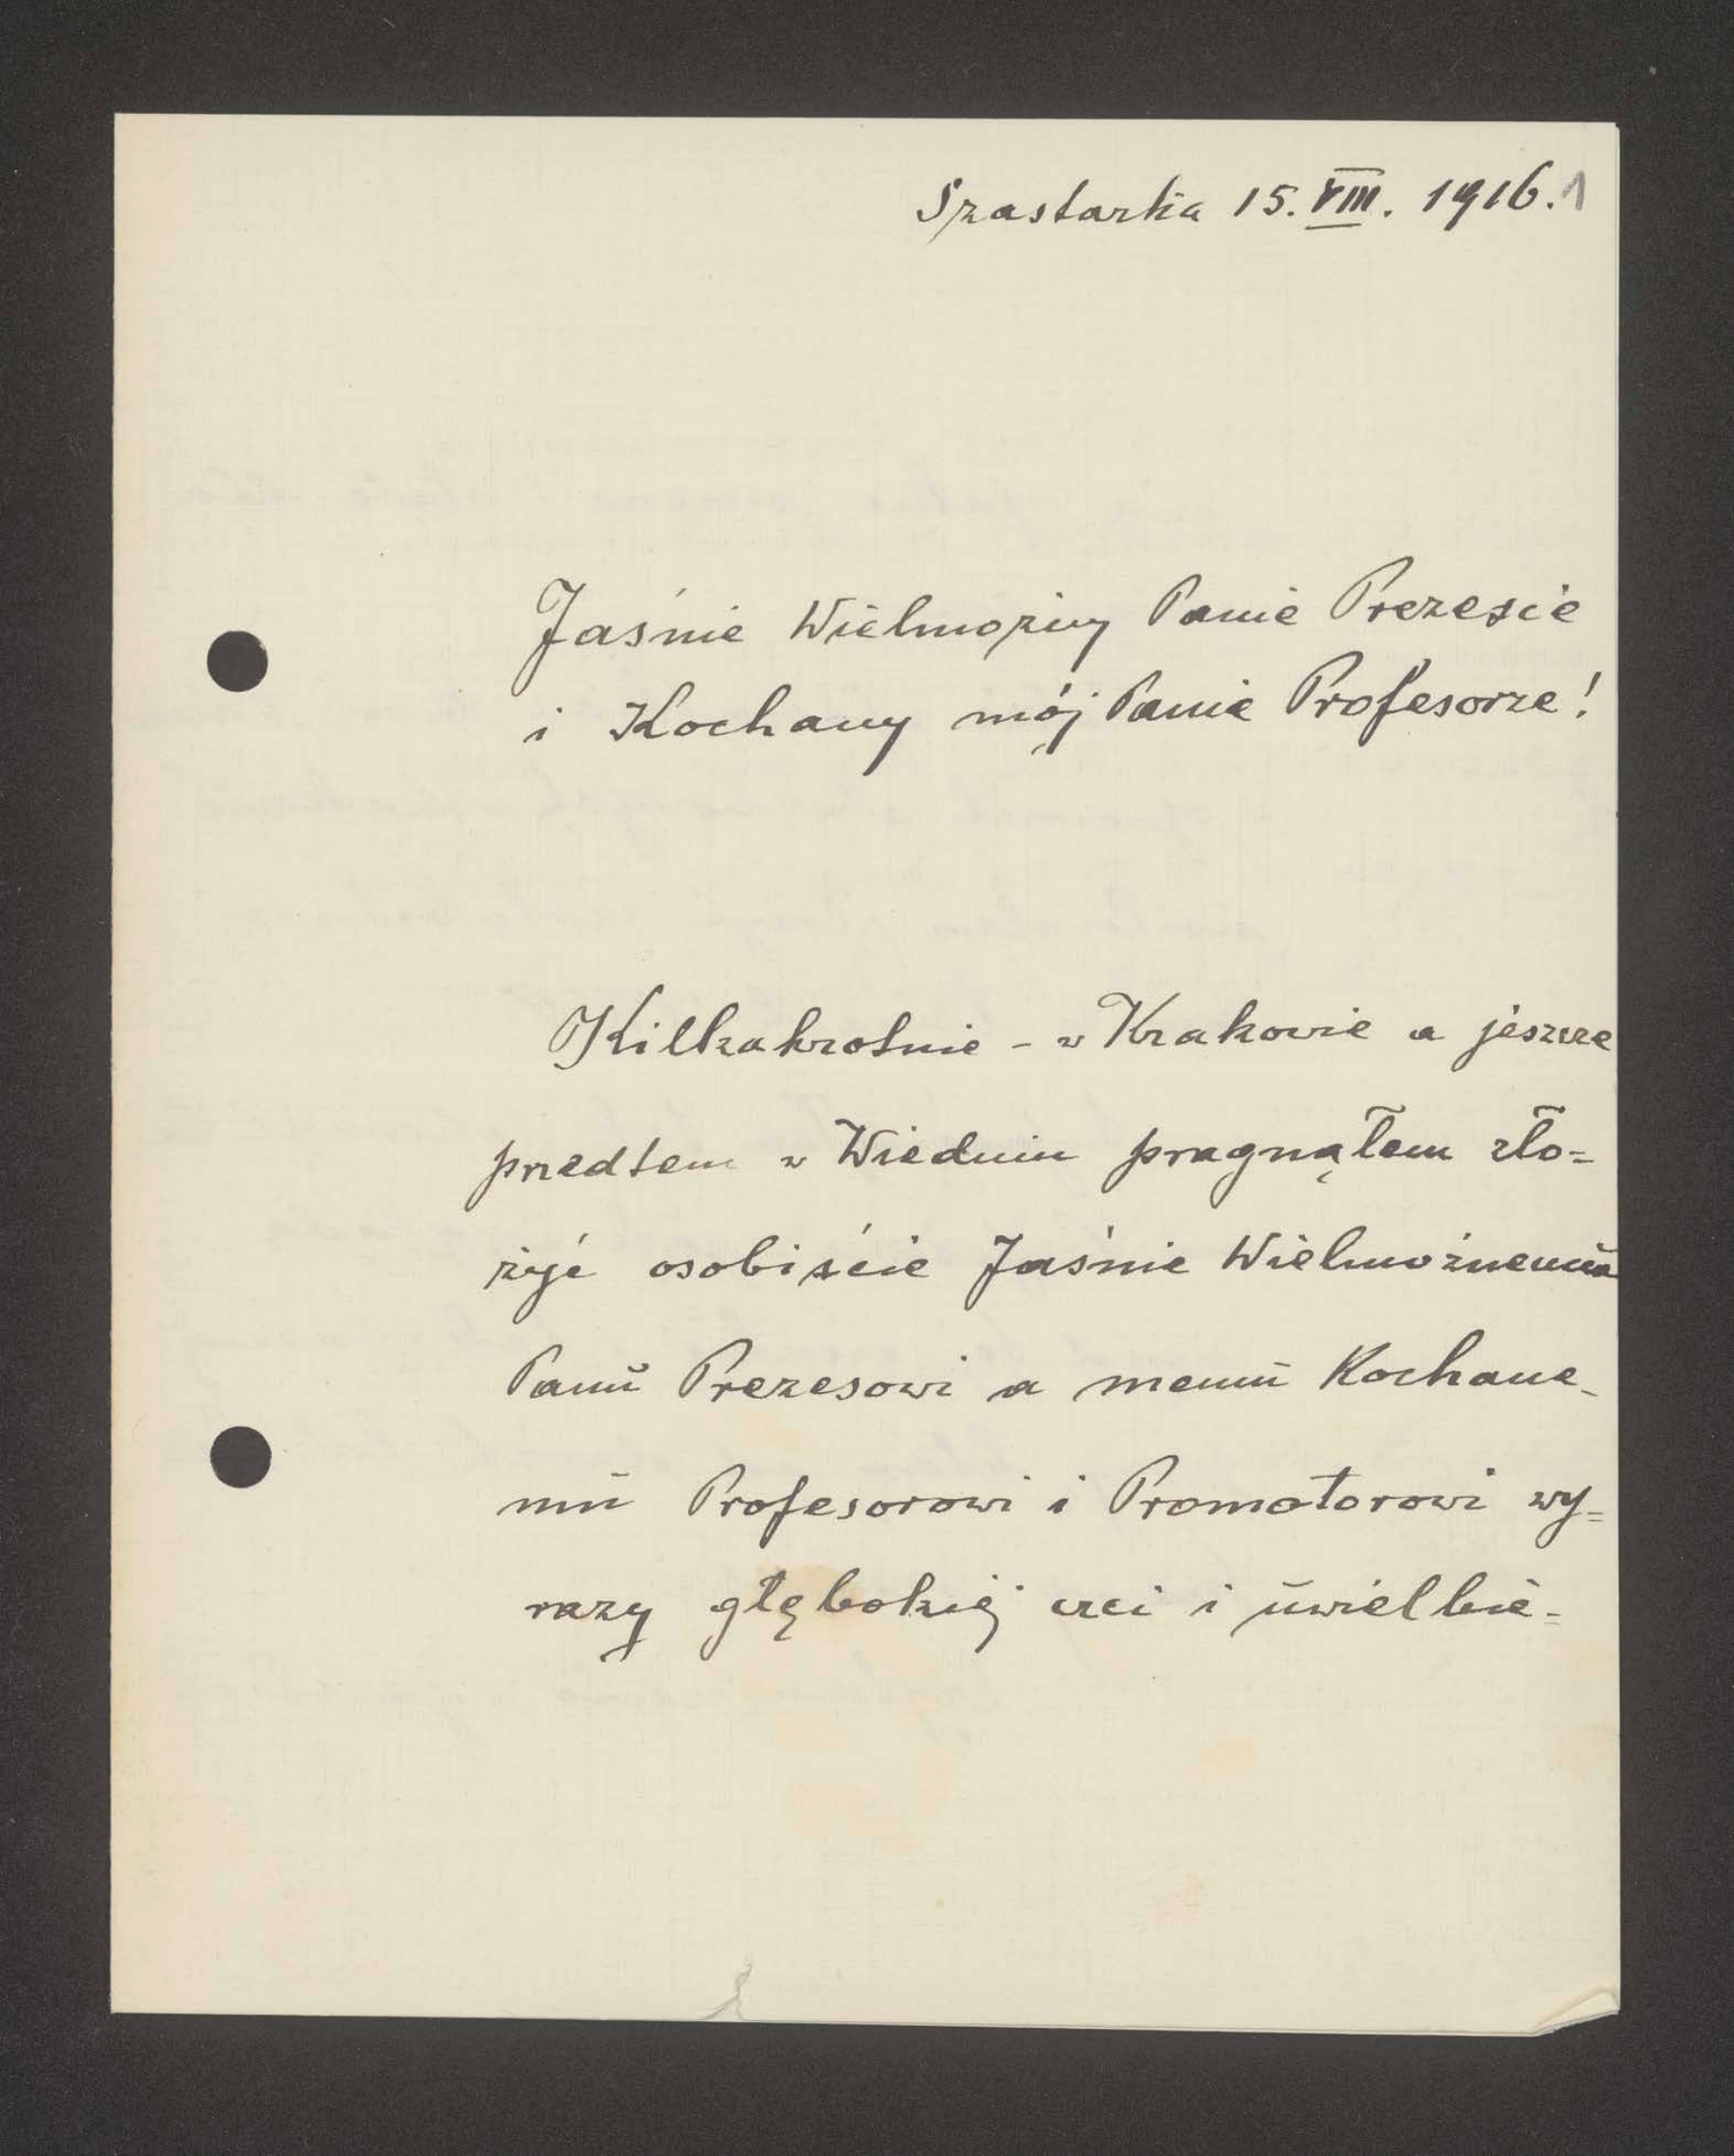 Szastarka 15. VIII. 1916. 1
Jaśnie Wielmożny Panie Prezesie
i Kochany mój Panie Profesorze!
Kilkakrotnie - w Krakowie a jeszcze
przedtem w Wiedniu pragnąłem zło=
żyć osobiście Jaśnie Wielmożnemu
Panu Prezesowi a memu Kochane-
mu Profesorowi i Promotorowi wy=
razy głębokiej czci i uwielbie-